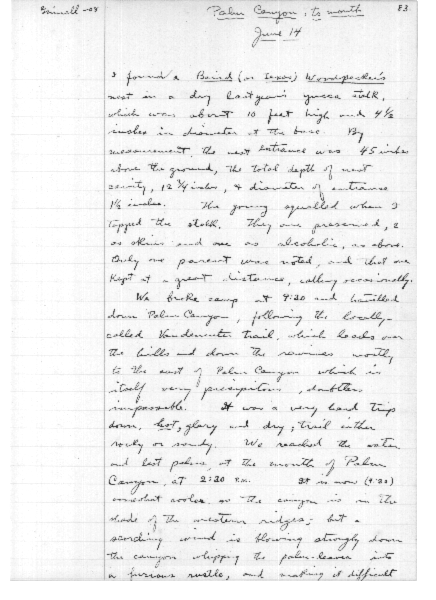 Grinnell - 08
Palm Canyon, its mouth
83
June 14
I found a Baird (or Texas) Woodpecker's
nest in a dry last year's yucca stalk,
which was about 10 feet high and 4 1/2
inches in diameter at the base. By
measurement, the nest entrance was 45 inches
above the ground, the total depth of nest
cavity, 12 1/4 inches, & diameter of entrance
1 1/2 inches. The young squalled when I
tapped the stalk. They are preserved, 2
as skins and one as alcoholic, as above.
Only one parent was noted, and that one
kept at a great distance, calling occasionally.
We broke camp at 9:20 and travelled
down Palm Canyon, following the locally-
called Vandeventer trail, which leads over
the hills and down the ravines mostly
to the east of Palm Canyon which is
itself very precipitous, doubtless
impassable. It was a very hard trip
down, hot, glary and dry; trail either
rocky or sandy. We reached the water
and last palms, at the mouth of Palm
Canyon, at 2:30 P.M. It is now
somewhat cooler, as the canyon is in the
shade of the western ridges; but a
scorching wind is blowing strongly down
the canyon whipping the palm-leaves into
a furious rustle, and making it difficult